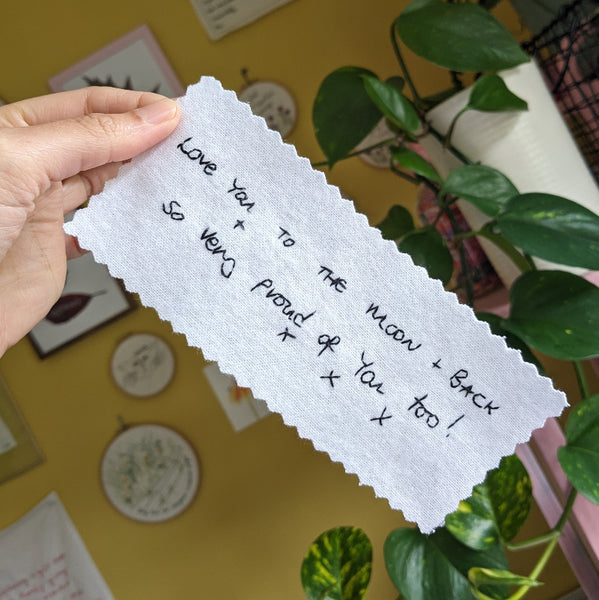 Love You to THE MOON + BACK
+
So very proud of You too!
x x x